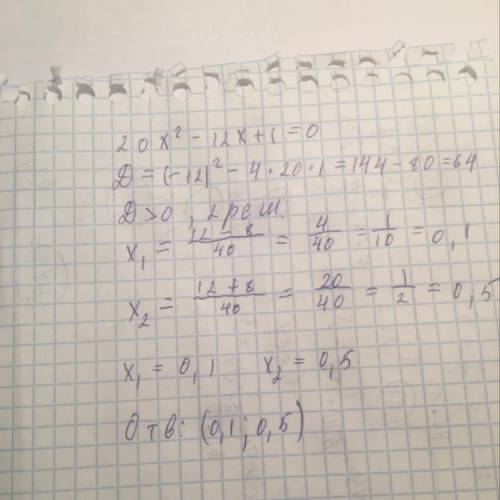 20x² - 12x + 1 = 0
Д = (-12)² - 4 · 20 · 1 = 144 - 80 = 64
Д > 0, 2 реш.
x₁ = (12 - 8)/40 = 4/40 = 1/10 = 0,1
x₂ = (12 + 8)/40 = 20/40 = 1/2 = 0,5
x₁ = 0,1 x₂ = 0,5
Отв: (0,1; 0,5)